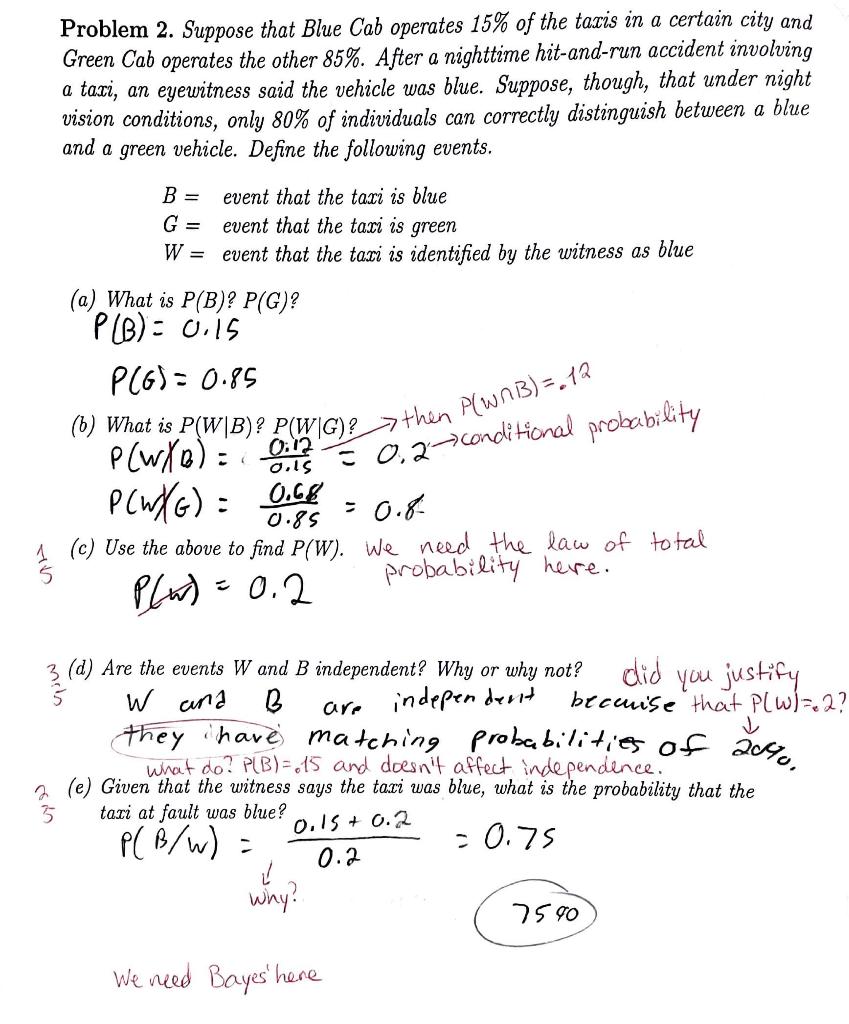 Problem 2. Suppose that Blue Cab operates 15% of the taxis in a certain city and
Green Cab operates the other 85%. After a nighttime hit-and-run accident involving
a taxi, an eyewitness said the vehicle was blue. Suppose, though, that under night
vision conditions, only 80% of individuals can correctly distinguish between a blue
and a green vehicle. Define the following events.
B = event that the taxi is blue
G = event that the taxi is green
W = event that the taxi is identified by the witness as blue
(a) What is P(B)? P(G)?
P(B) = 0.15
P(G) = 0.85
(b) What is P(W|B)? P(W|G)? → then P(W∩B)=.12
P(W/B) = 0.12/0.15 = 0.2 → conditional probability
P(W/G) = 0.68/0.85 = 0.8
1/5 (c) Use the above to find P(W). We need the law of total
probability here.
P(W) = 0.2
3/5 (d) Are the events W and B independent? Why or why not? did you justify
W and B are independent because that P(W)=.2?
they have matching probabilities of 20%.
what do? P(B)=.15 and doesn't affect independence.
2/5 (e) Given that the witness says the taxi was blue, what is the probability that the
taxi at fault was blue?
P(B/W) = 0.15 + 0.2 / 0.2 = 0.75
why?
75%
We need Bayes' here